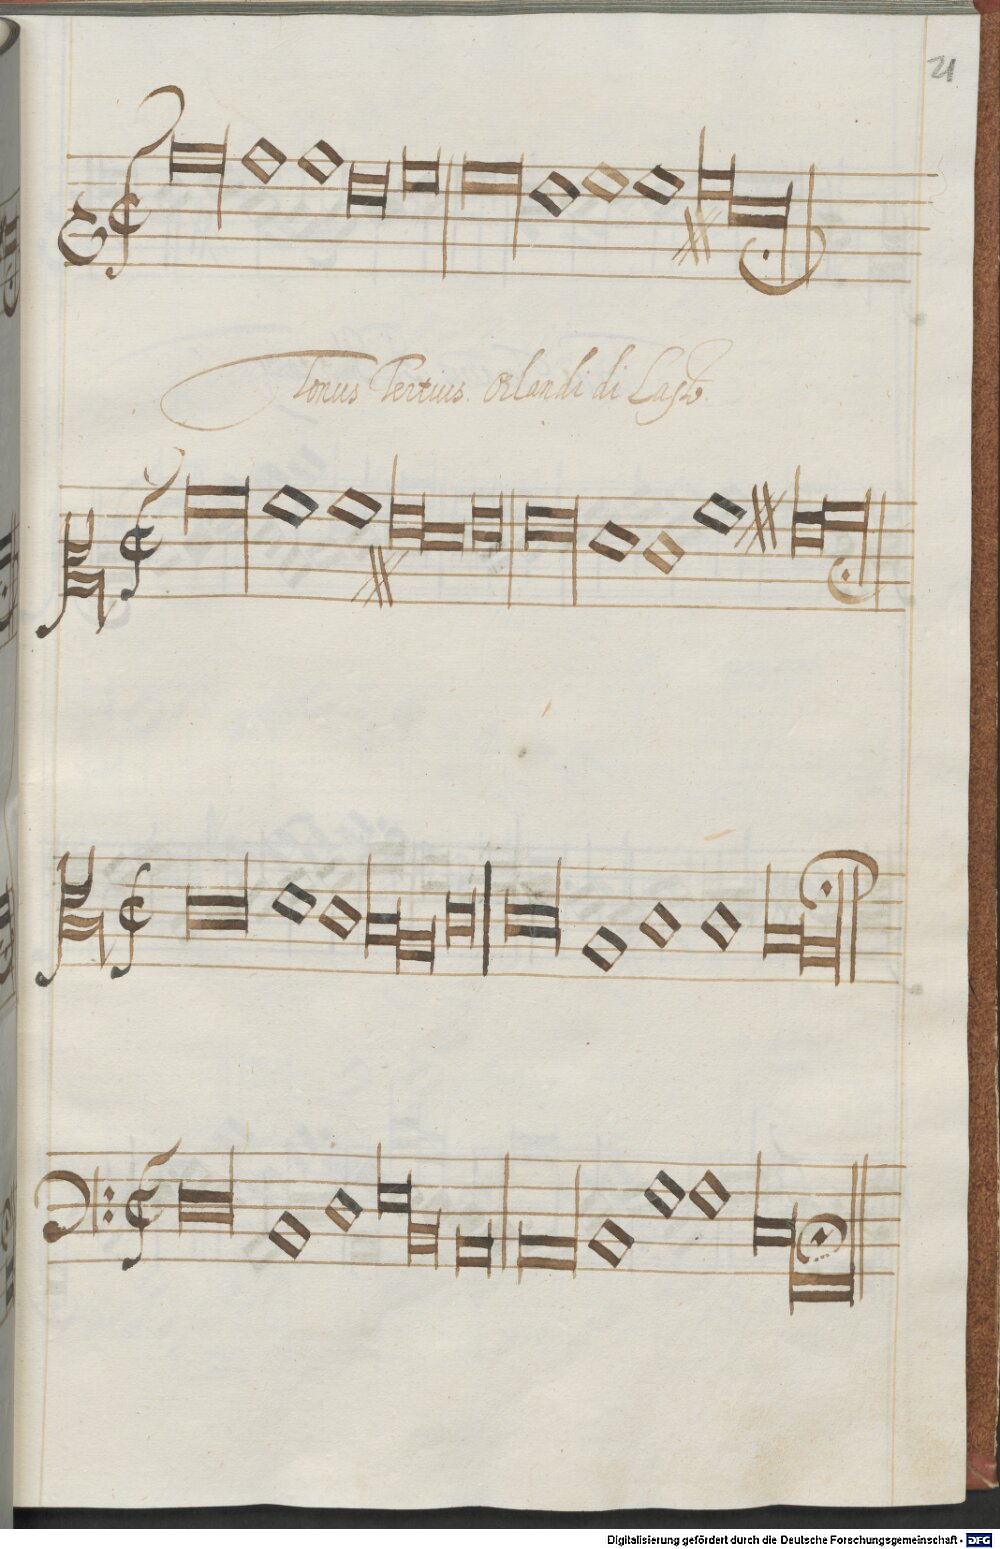 21
Tonus Tertius. Orlandi di Lasso.
Digitalisierung gefördert durch die Deutsche Forschungsgemeinschaft - DFG